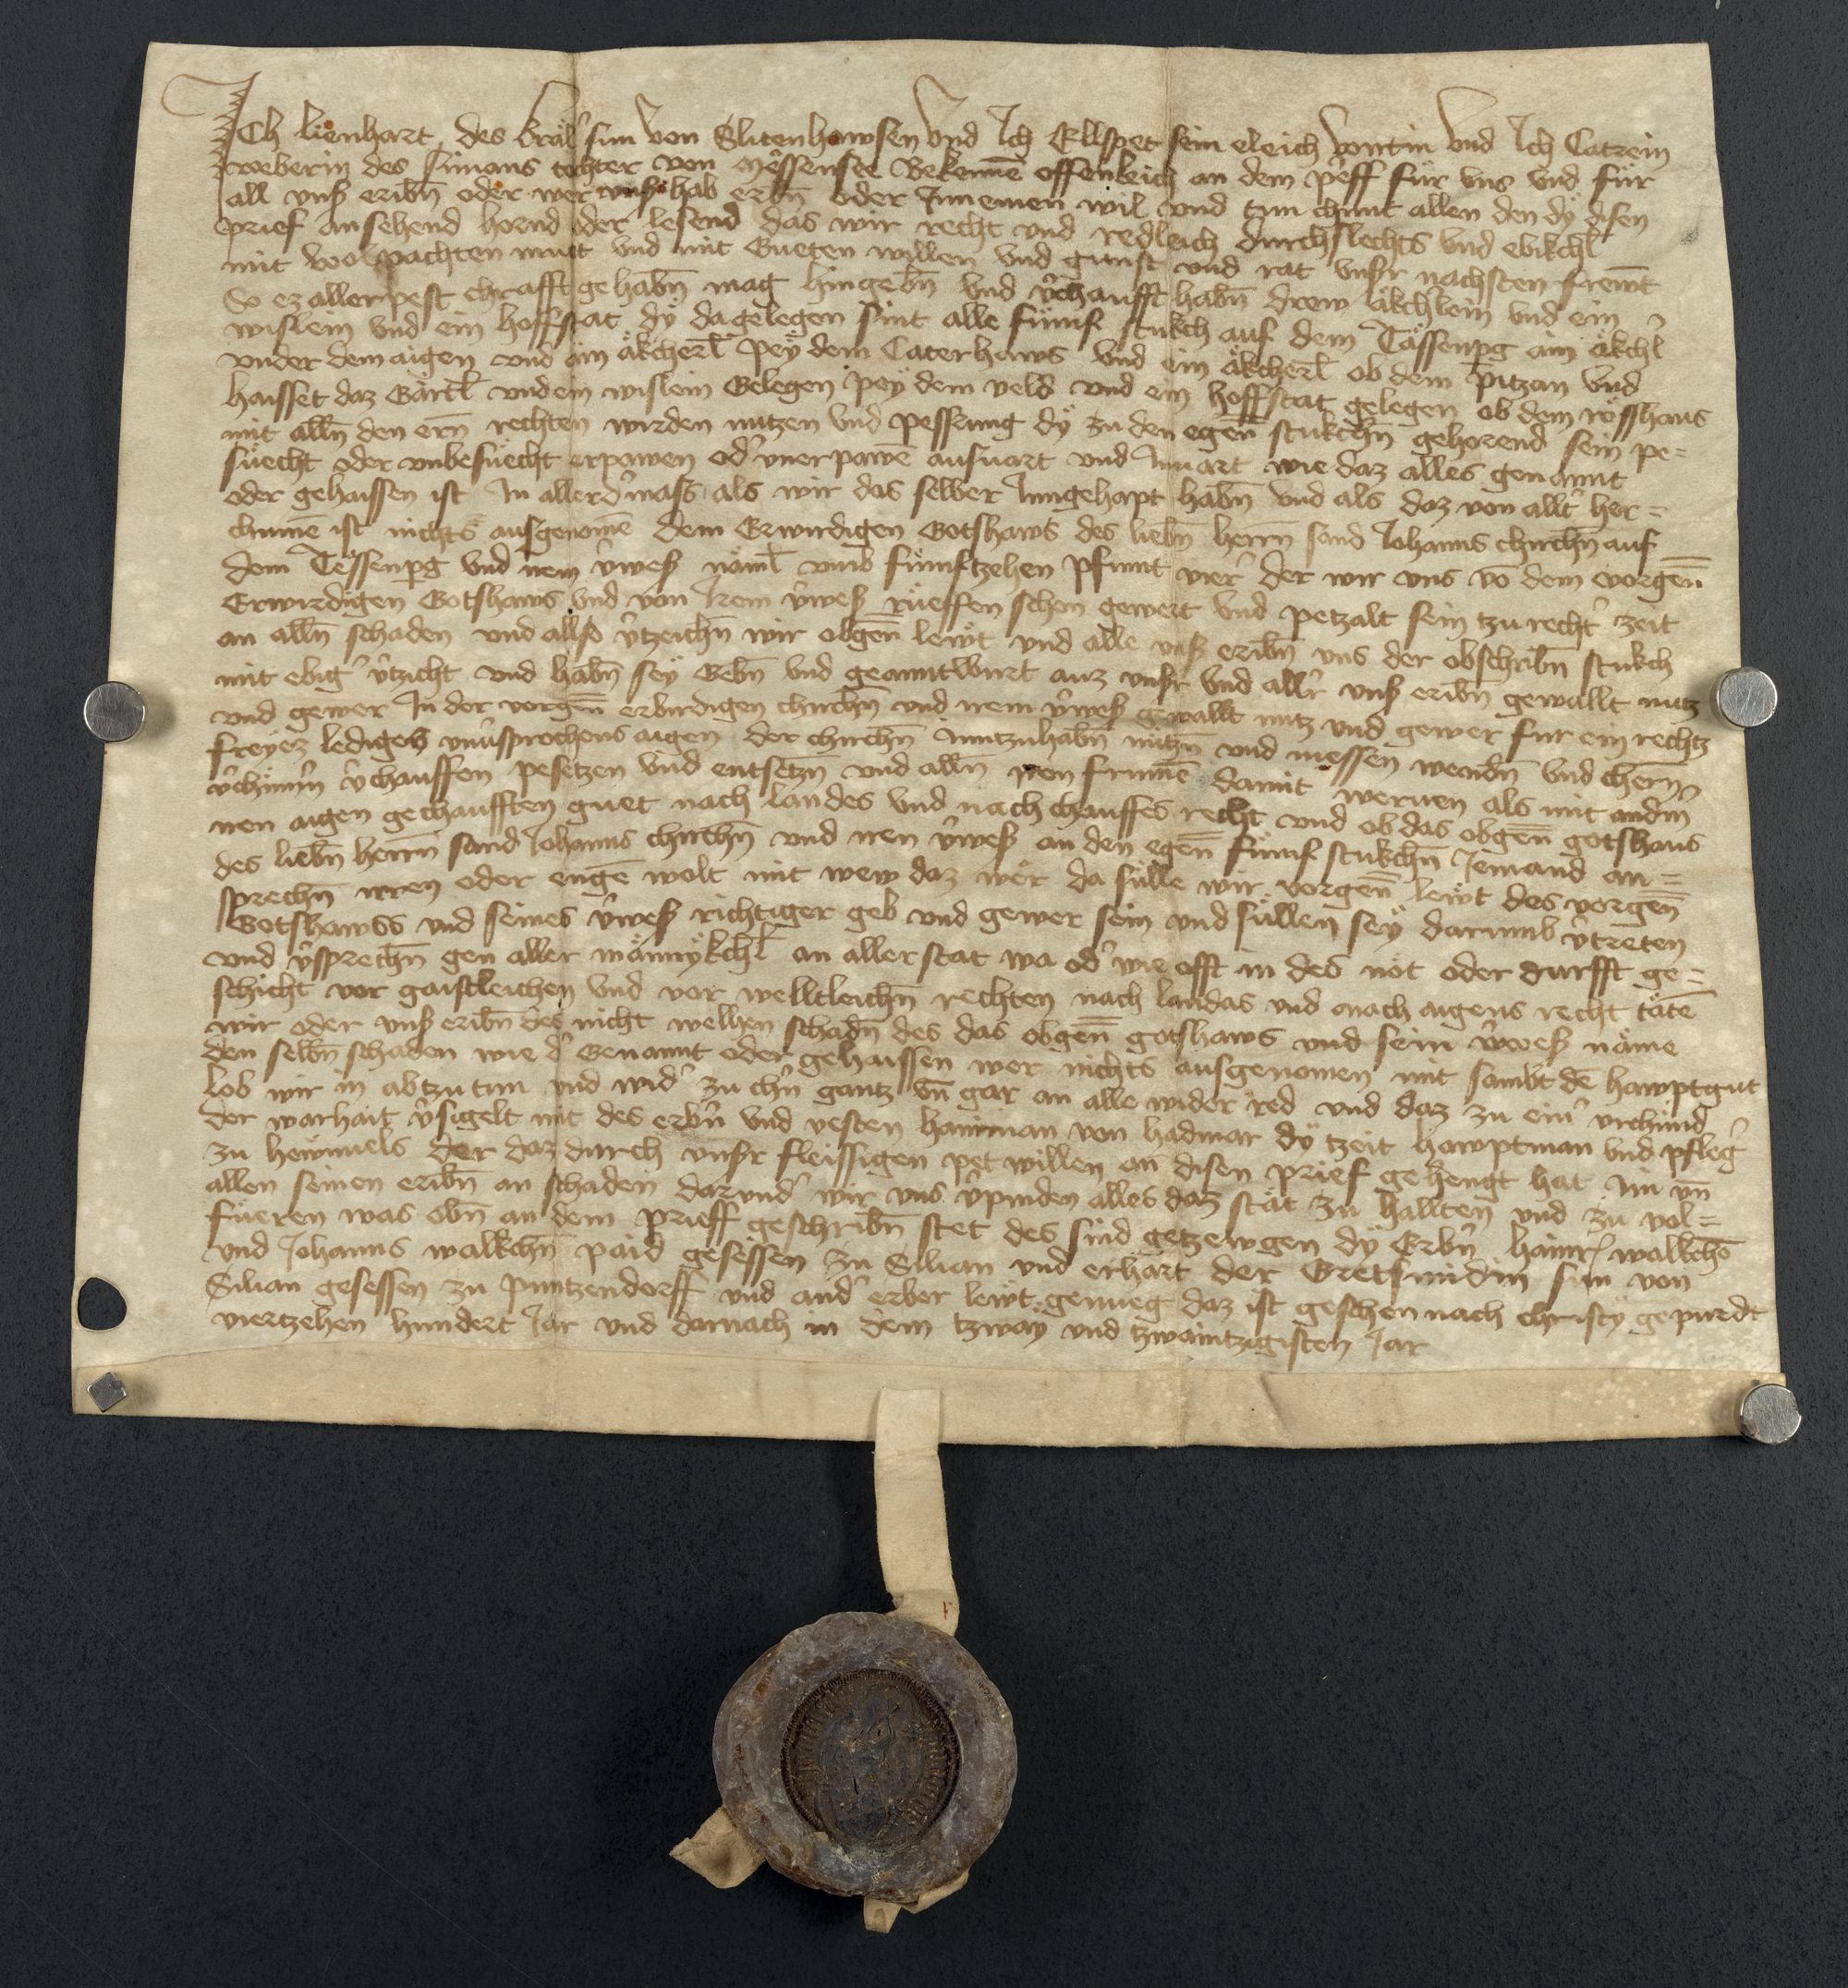 Ich lienhart des král sun von Slitenhawsen vnd Ich Ellspet sein eleich wirtin vnd Ich Catrein
weberin des Simans tochter von Mëssensee Bekenne offenleich an dem prieff für vns vnd für
all vnß eribn̄ oder wer vnß hab erbn̄ oder Innemen wil vnd tun chunt allen den dÿ disen
prief ansehend hornd oder lesend das wir recht vnd redleich durchslechts vnd ebikchl
mit wolpachten muet vnd mit Gueten willen vnd gunst vnd rat vnsr nachsten frewt
So ez aller pest chrafft gehabn̄ mag hingebn̄ vnd v̉chaufft habn̄ drew äkchlein vnd ein
wislein vnd ein hoffstat dÿ da gelegen sint alle fümf stukch auf dem Tässenpg ain äkchl
vnder dem aigen vnd ain äkcherl peÿ dem Caterhaws vnd ein äkcherl ob dem pitzan vnd
haisset daz Gärtl vnd ein wislein Gelegen peÿ dem veld vnd ein hoffstat gelegen ob dem rösshaus
mit alln̄ den ern̄ rechten wirden nutzen vnd pessrung dÿ zu den egen̄ stukchn̄ gehorend sein pe=
suecht oder vnbesuecht erpawen od̉ vnerpawē ausuart vnd Inuart wie daz alles genannt
oder gehaissen ist In aller d̉ mass als wir das selber Inngehapt habn̄ vnd als daz von allt̉ her=
chumē ist nichts ausgenomē dem Erwirdigen Gotshaws des liebn̄ herrn̄ sand Johanns chirchn̄ auf
dem Tessenpg vnd irem v̉weß näml vmb fümftzehen pfunt vier̉ der wir vns vō dem vorgen̄
Erwirdigen Gotshaws vnd von Irem v̉weß rüeffen schon gewert vnd petzalt sein tzu recht̉ zeit
an alln̄ schaden vnd allso v̉tzeichn̄ wir obgen̄ lewt vnd alle vnß eribn̄ vns der obschribn̄ stukch
mit ebig̉ v̉tzicht vnd habn̄ seÿ Gebn̄ vnd geanntwurt auz vnsr vnd all̉r vnß eribn̄ gewallt nutz
vnd gewer In der vorgen̄ erbirdigen chirchn̄ vnd irem v̉weß gewallt nutz vnd gewer fur ein rechtz
freyez ledigeß vnủsprochens aigen der chirchn̄ Inntzuhabn̄ nutzn̄ vnd niessen wendn̄ vnd chern̄
v̉chümrn̄ v̉chauffen pesetzen vnd entsetzn̄ vnd alln̄ iren frumē damit weruen als mit andn̉
iren aigen gechaufften guet nach landes vnd nach chauffes recht vnd ob das obgen̄ gotshaus
des liebn̄ herrn̄ sand Johanns chirchn̄ vnd iren v̉weß an den egen̄ fümf stukchn̄ Iemand an=
sprechn̄ irren oder engē wolt mit wew daz wër da sülle wir vorgen̄ lewt des vorgen̄
Gotshawss vnd seines v̉weß richtiger geb vnd gewer sein vnd süllen seÿ darumb v̉treten
vnd v̉sprechn̄ gen aller männykchl an aller stat wa od̉ wie offt in des nöt oder durfft ge=
schicht vor gaistleichen vnd vor welltleichn̄ rechten nach landas vnd nach aigens recht tätē
wir oder vnß eribn̄ des nicht welhen schadn̄ des das obgen̄ gotshaws vnd sein v̉weß näme
den selbn̄ schaden wie d̉ Genannt oder gehaissen wer nichts ausgenomen mit sambt dē hawptgut
lob wir in abtzutun vnd wid̉ zu chn̉ gantz vn̄ gar an alle wider red vnd daz zu ein̉ vrchünd
der warhait v̉sigelt mit des erbn̉ vnd vesten hainman von hadmar dÿ tzeit hawptman vnd pfleg̉
zu hewnuels der daz durch vnsr fleissigen pet willen an disen prief gehengt hat im vn̄
allen seinen eribn̄ an schaden darund̉ wir vns v̉pinden alles daz stät zu hallten vnd zu vol=
füeren was obn̄ an dem prieff geschribn̄ stet des sind getzewgen dÿ Erbn̉ hainr̉ walkchō
vnd Johanns walkchn̄ paid gesessen zu Silian vnd erhart der Gretsmidin sun von
Silian gesessen zu puntzendorff vnd and̉ erber lewt genueg daz ist geschen nach christÿ gepurdt
viertzehen hundert Jar vnd darnach in dem tzway vnd tzwaintzigisten Jar